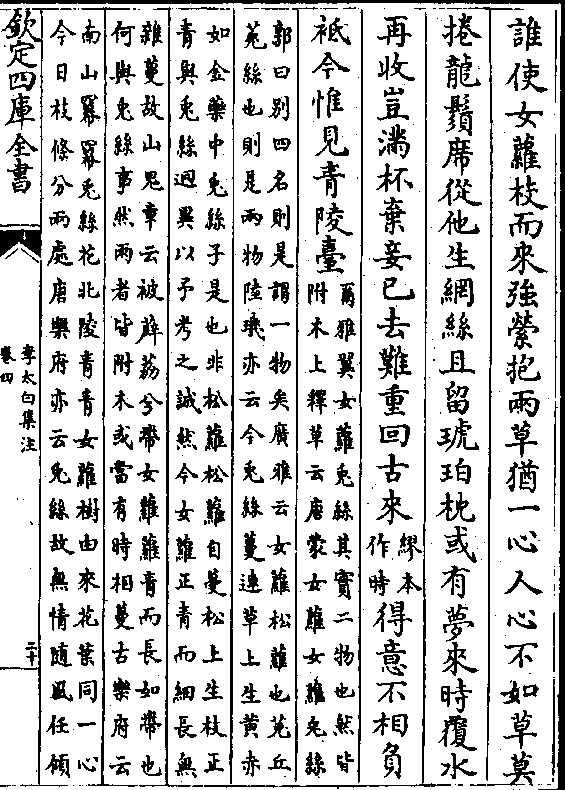 誰使女蘿枝而來強縈抱兩草猶一心人心不如草莫
捲龍鬚席從他生網絲且留琥珀枕或有夢來時覆水
再收豈滿杯棄妾已去難重回古來繆本作時得意不相負
祗今惟見青陵臺爾雅翼女蘿兔絲其實二物也然皆
附木上釋草云唐蒙女蘿女蘿兔絲
郭曰别四名則是謂一物矣廣雅云女蘿松蘿也菟丘
菟絲也則是兩物陸璣亦云今兔絲蔓連草上生黄赤
如金藥中兔絲子是也非松蘿松蘿自蔓松上生枝正
青與兔絲迥異以予考之誠然今女蘿正青而細長無
雜蔓故山鬼章云被薜荔兮帶女蘿蘿青而長如帶也
何與兔絲事然兩者皆附木或當有時相蔓古樂府云
南山冪冪兔絲花北陵青青女蘿樹由來花葉同一心
今日枝條分兩處唐樂府亦云兔絲故無情隨風任傾
欽定四庫全書
李太白集注
卷四
二十